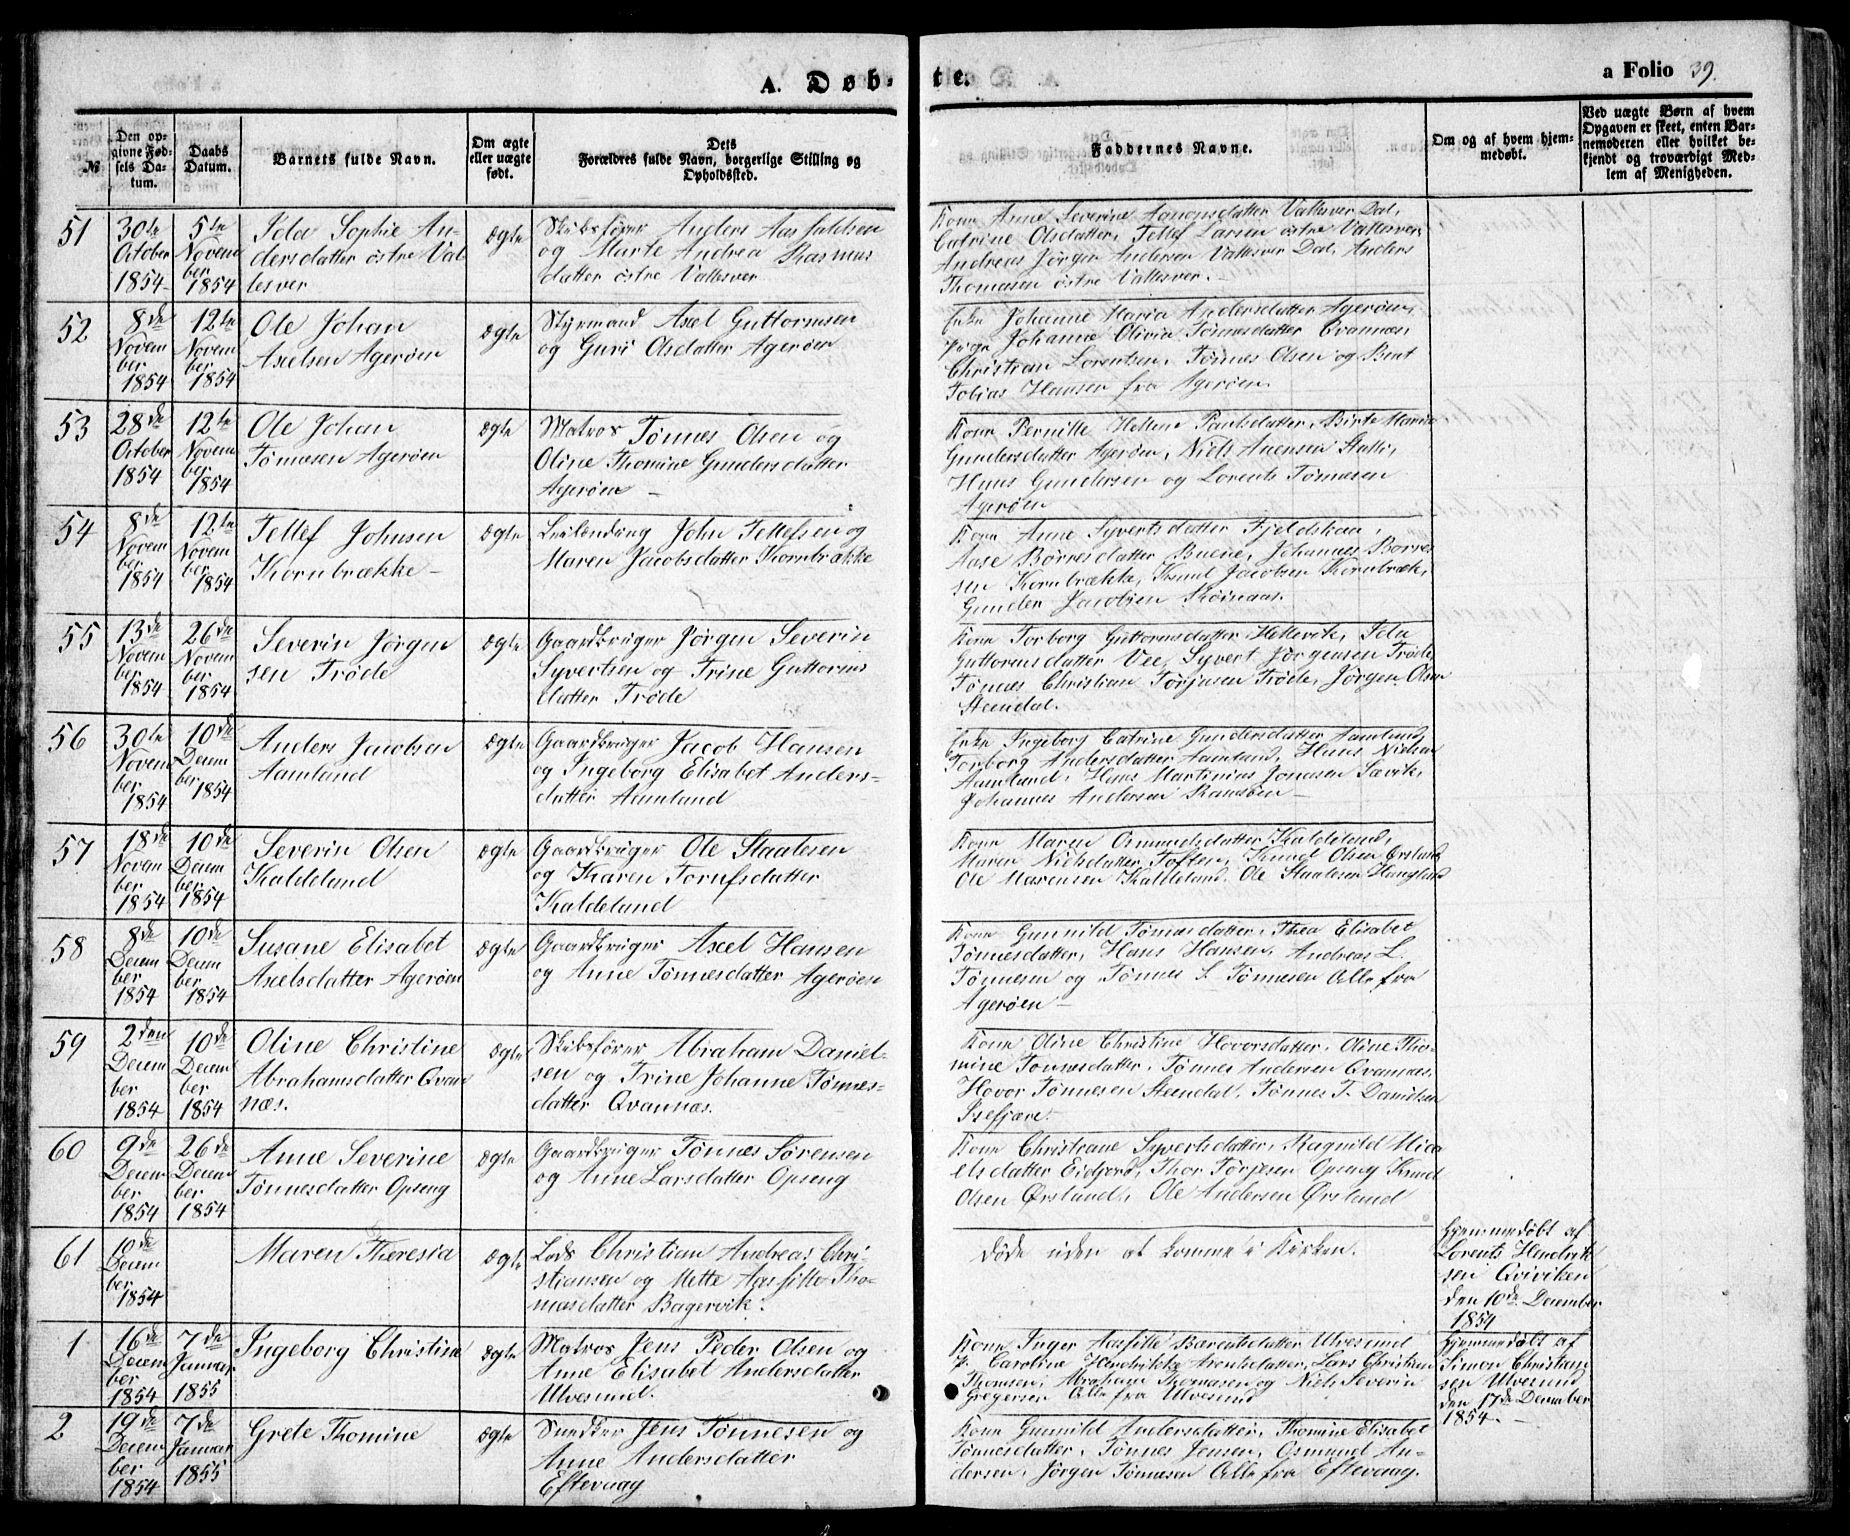 A. Døb-
te.
a Folio 39.
№
Den op-
givne Fød-
sels Da-
tum.
Daabs
Datum.
Barnets fulde Navn.
Om ægte
eller uægte
født.
Dets
Forældres fulde Navn, borgerlige Stilling og
Opholdssted.
Faddernes Navne.
Om og af hvem hjem-
medøbt.
Ved uægte Børn af hvem
Opgaven er skeet, enten Bar-
nemoderen eller hvilket be-
kjendt og troværdigt Med-
lem af Menigheden.
51
30te
October
1854
5te
Novem
ber
1854
Ida Sophie An-
dersdatter østre Val
lesver
ægte
Skibsfører Anders
og Marte Andrea Rasmus
datter østre Vallesver
Kone Anne Severine Aanonsdatter Vallesver Dal,
Catrine Olsdatter, Tellef Larsen østre Vallesver,
Andreas Jørgen Andersen Vallesver Dal, Anders
Thomasen østre Vallesver.
52
8de
Novem
ber
1854
12te
Novem
ber
1854
Ole Johan
Axelsen Agerøen
ægte
Styrmand Axel Guttormsen
og Guri Olsdatter Agerøen
Enke Johanne Maria Andersdatter Agerøen,
Pige Johanne Olivia Tønnesdatter Qvannæs,
Christian Lorentsen, Tønnes Olsen og Bent
Tobias Hansen fra Agerøen.
53
28de
October
1854
12te
Novem
ber
1854
Ole Johan
Tønnesen Agerøen
ægte
Matros Tønnes Olsen og
Oline Thomine Gundersdatter
Agerøen
Kone Pernille Helene Paulsdatter, Birte Marie
Gundersdatter Agerøen, Niels
Hans Gundersen og Lorents Tønnesen
Agerøen
54
8de
Novem
ber
1854
12te
Novem
ber
1854
Tellef Johnsen
Kornbrække
ægte
Leilending John Tellefsen og
Maren Jacobsdatter Kornbrække
Kone Anne Syvertsdatter Fjeldskau,
Aase Børresdatter Buene, Johannes Børres
sen Kornbrække, Knud Jacobsen Kornbræk,
Gunder Jacobsen
55
13de
Novem
ber
1854
26de
Novem
ber
1854
Severin Jørgen
sen Trøde
ægte
Gaardbruger Jørgen Severin
Syvertsen og Trine Guttorms
datter Trøde
Kone Torborg Guttormsdatter Hellevik, Ida
Guttormsdatter Vee, Syvert Jørgensen Trøde,
Tønnes Christian Torjusen Trøde, Jørgen Olsen
Steendal.
56
30te
Novem
ber
1854
10de
Decem
ber
1854
Anders Jacobsen
Aamland
ægte
Gaardbruger Jacob Hansen
og Ingeborg Elisabet Anders-
datter Aamland
Enke Ingeborg Catrine Gundersdatter Aamland,
Torborg Andersdatter Aamland, Hans Nielsen
Aamland, Hans Martinius Jonasen Sævik,
Johannes Andersen
57
18de
Novem
ber
1854
10de
Decem
ber
1854
Severin Olsen
Kaldeland
ægte
Gaardbruger Ole Staalesen
og Karen Tornfsdatter
Kaldeland
Kone Maren Osmundsdatter Kaldeland,
Maren Nielsdatter Toften, Knud Olsen Ørsland,
Ole Mørensen Kaldeland, Ole Staalesen Haugland
58
8de
Decem
ber
1854
10de
Decem
ber
1854
Susane Elisabet
Axelsdatter Agerøen
ægte
Gaardbruger Axel Hansen
og Anne Tønnesdatter Agerøen
Kone Gunnild Tønnesdatter, Thea Elisabet
Tønnesdatter, Hans Hansen, Andreas L.
Tønnesen og Tønnes S. Tønnesen Alle fra
Agerøen
59
2den
Decem
ber
1854
10de
Decem
ber
1854
Oline Christine
Abrahamsdatter Qvan
næs.
ægte
Skibsfører Abraham Daniel-
sen og Trine Johanne Tønnes-
datter Qvannæs.
Kone Oline Christine Hovorsdatter, Oline Tho-
mine Tønnesdatter, Tønnes Andersen Qvannæs,
Hovor Tønnesen Steendal, Tønnes T. Danielsen
Isefjær.
60
9de
Decem
ber
1854
26de
Decem
ber
1854
Anne Severine
Tønnesdatter Opseng
ægte
Gaardbruger Tønnes Sørensen
og Anne Larsdatter Opseng
Kone Christiane Syvertsdatter, Ragnild Mica
elsdatter Eidjord, Thor Torjesen Opseng Knud
Olsen Ørsland, Ole Andersen Ørsland
61
10de
Decem
ber
1854
Maren Theresia
ægte
Lods Christian Andreas Chri-
stiansen og Mette Aasille Tho-
masdatter Bagervik.
døde uden at komme i Kirken.
Hjemmedøbt af
Lorents Hendrik
sen Qviviken
den 10de December
1854
1
16de
Decem
ber
1854
7de
Januar
1855
Ingeborg Christine
ægte
Matros Jens Peder Olsen og
Anne Elisabet Andersdatter
Ulvesund.
Kone Inger Aasille Barentsdatter Ulvesund
P. Caroline Hendrikke Arentsdatter, Lars Christian
Thomsen, Abraham Thomasen og Niels Severin
Gregersen Alle fra Ulvesund
Hjemmedøbt af
Simon Christian
sen Ulvesund
den 17de December
1854.
2
19de
Decem
ber
1854
7de
Januar
1855
Grete Thomine
ægte
Snedker Jens Tønnesen og
Anne Andersdatter
Eftevaag
Kone Gunild Andersdatter, Thomine Elisabet
Tønnesdatter, Tønnes Jensen, Osmund An-
dersen, Jørgen Tønnesen Alle fra Eftevaag.